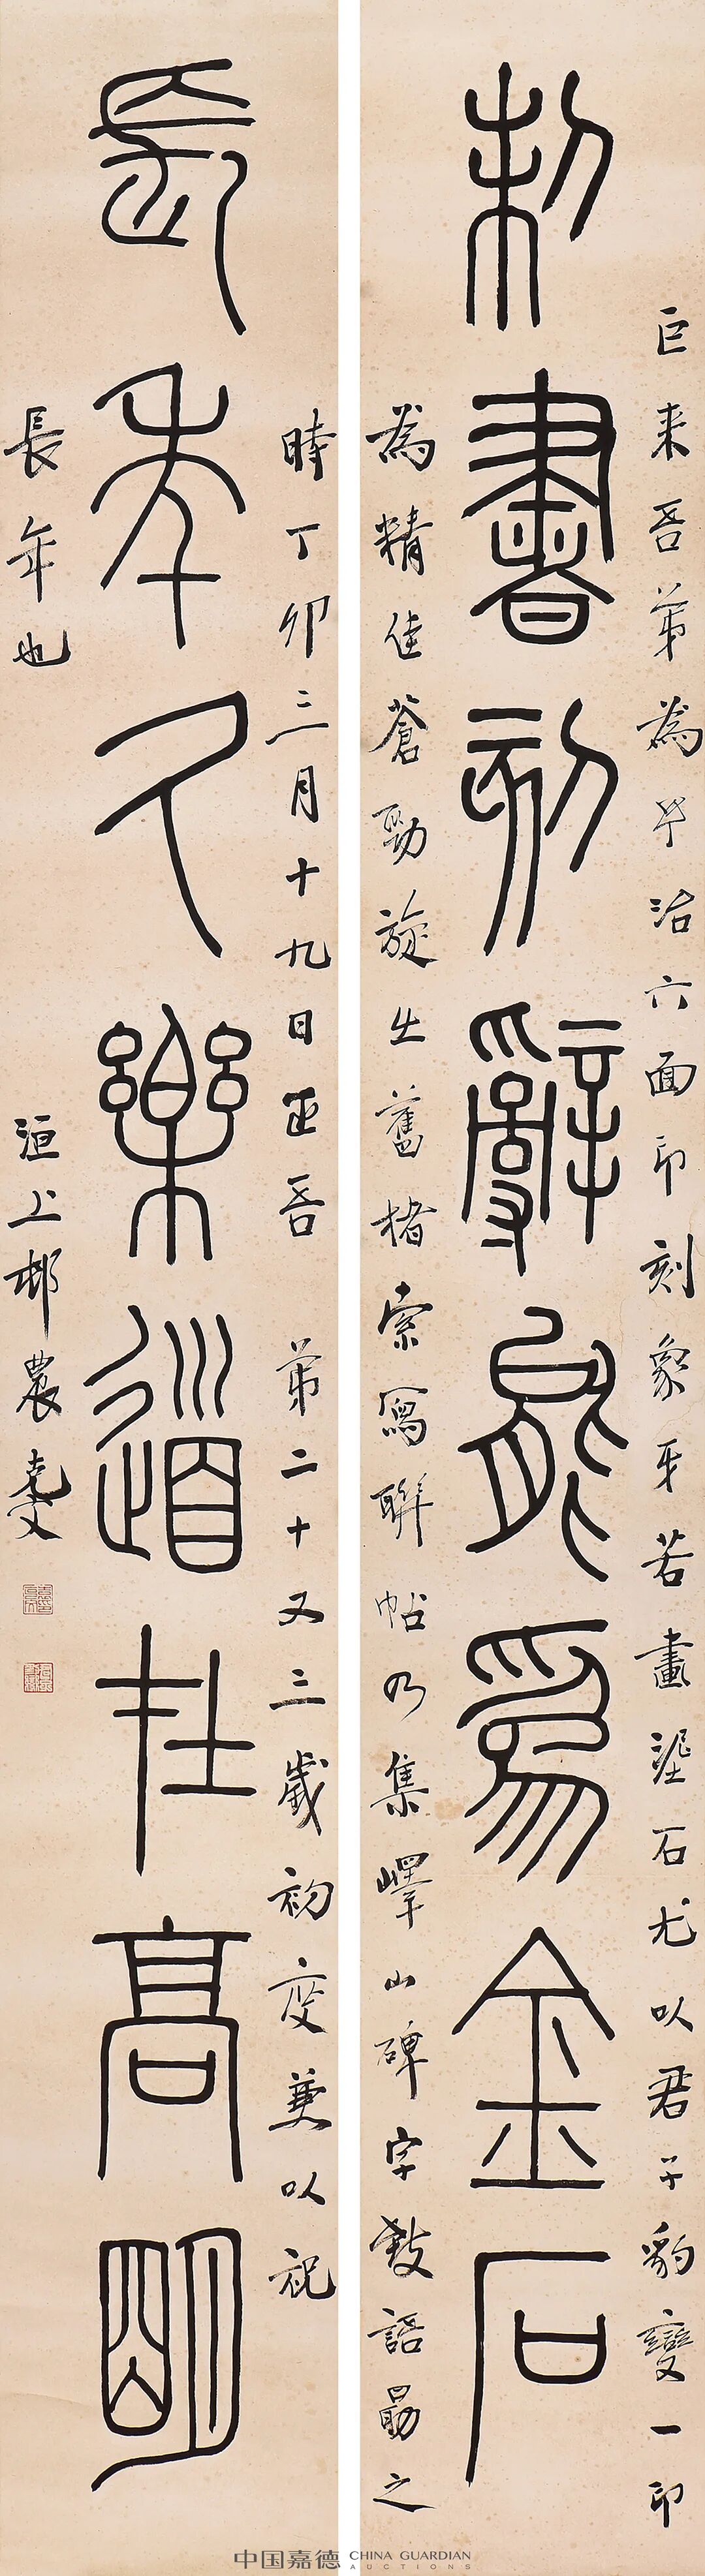 制書刻辭能爲金石
巨来吾弟為予治六面印刻象牙若畫埿石尤以君子豹變一印
為精佳蒼勁旋出舊楮索寫聯帖乃集嶧山碑字數語勗之
長年久樂道在高明
時丁卯三月十九日正吾弟二十又三歲初度兼以祝
長年也
洹上邨農克文
中国嘉德 CHINA GUARDIAN AUCTIONS